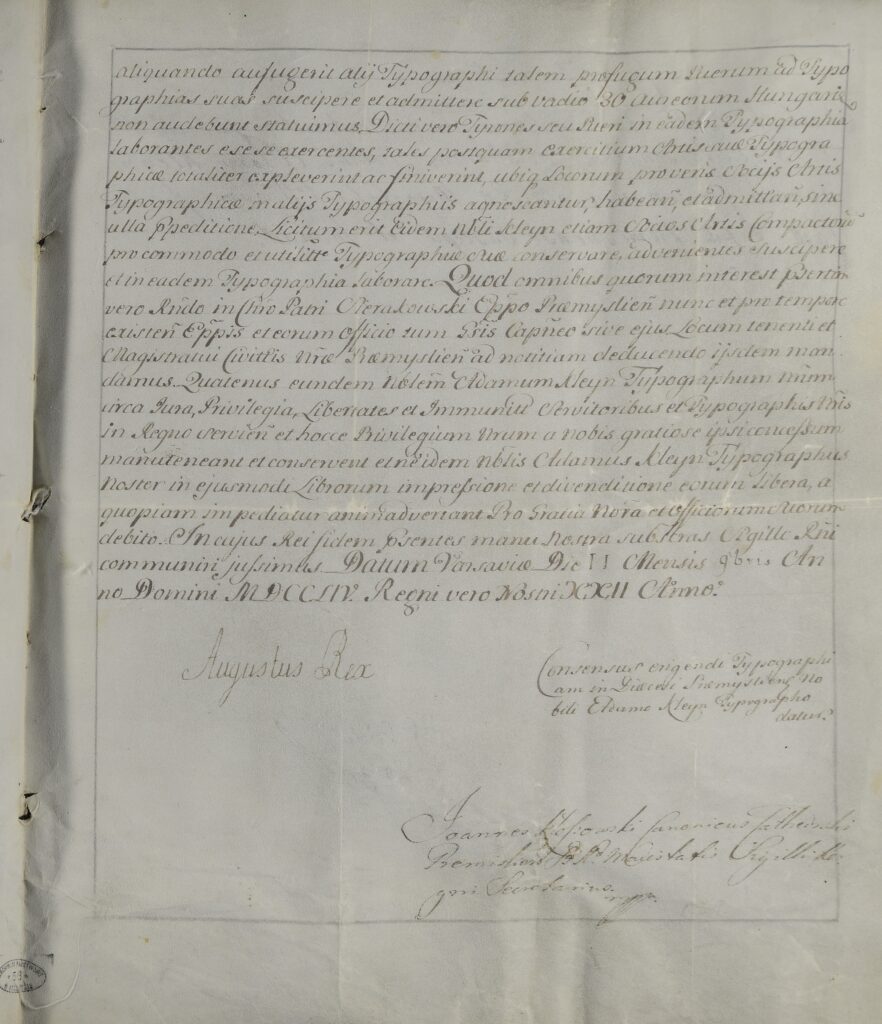 aliquando aufugerit alij Typographi talem profugum Puerum ad Typo
graphias suas suscipere et admittere sub vadio 30 Aureorum Hungaric
non audebunt statuimus. Dicti vero Tyrones seu Pueri in eadem Typographia
laborantes et sese exercentes, tales postquam exercitium Artis suæ Typogra
phicæ totaliter expleverint ac finiverint, ubiq Locorum pro veris Socijs Artis
Typographicæ in alijs Typographiis agnoscantur, habean̄, et admittan̄, sine
ulla Licitum erit Eidem Nbli Kleyn etiam Socios Artis Compactoriæ
pro commodo et utilitte Typographiæ Suæ conservare, advenientes suscipere
et in eadem Typographia laborare. Quod omnibus quorum interest pserti
vero Rndo in Chro Patri Sierakowski Eppo Præmyslien̄ nunc et pro tempore
existen̄ Eppis et eorum Officio tum Gnis Capneo sive ejus Locum tenenti et
Magistratui Civittis Nræ Præmyslien̄ ad notitium deducendo ijsdem man
damus. Quatenus eundem Noblem Adamum Kleyn Typographum Nrum
circa Jura, Privilegia, Libertates et Immunitt Servitoribus et Typographis Nris
in Regno servien̄ et hocce Privilegium Nrum a nobis gratiose ipsi concessum
manuteneant et conservent et ne idem Nblis Adamus Kleyn Typographus
Noster in ejusmodi Librorum impressione et divenditione eorum libera, a
quopiam impediatur animadvertant Pro Gratia Nora et Officiorum Suorum
debito. In cujus Rei fidem psentes manu Nostra subscras Sigillo Rni
communiri jussimus. Datum Varsaviæ Die 11 Mensis 9bris An
no Domini MDCCLIV. Regni vero Nostri XXII Anno.
Augustus Rex
Consensus erigendi Typographi
am in Diæcesi Præmysliens No
bili Adamo Kleyn Typographo
datur.
Joannes Canonicus Cathedralis
Premislien Maiestatis Sigilli Re
gni Secretarius mpp.